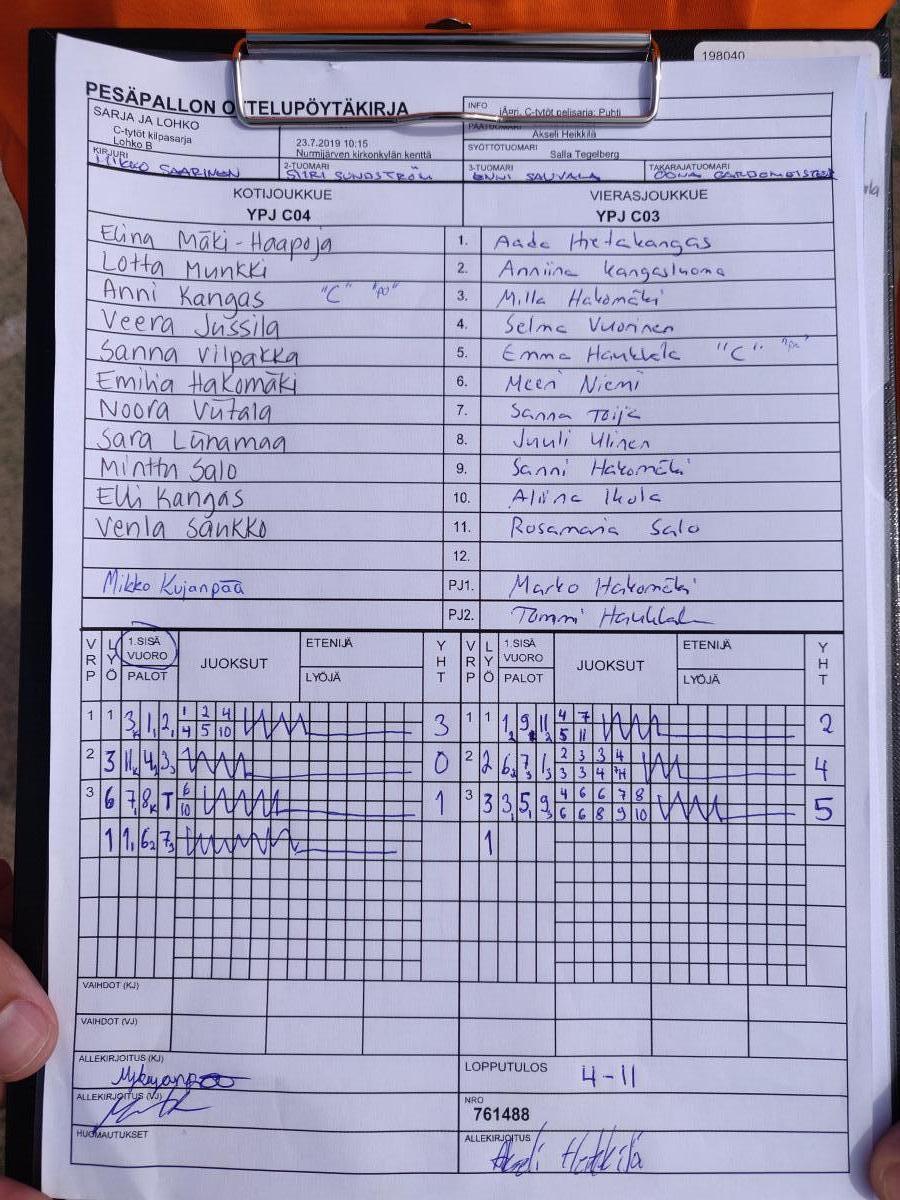 198040
PESÄPALLON OTTELUPÖYTÄKIRJA
INFO
jÄgri, C-tytöt pelisarja: Puhti
SARJA JA LOHKO
C-tytöt kilpasarja
Lohko B
23.7.2019 10:15
Nurmijärven kirkonkylän kenttä
PÄÄTUOMARI
Akseli Heikkilä
SYÖTTÖTUOMARI
Salla Tegelberg
KIRJURI
MIKKO SAARINEN
2-TUOMARI
SIIRI SUNDSTRÖM
3-TUOMARI
ENNI SAUVALA
TAKARAJATUOMARI
OONA GARDEMEISTER
KOTIJOUKKUE
VIERASJOUKKUE
YPJ C04
YPJ C03
Elina Mäki-Haapoja 1. Aada Hietakangas
Lotta Munkki 2. Anniina Kangasluoma
Anni Kangas "C" "po" 3. Milla Hakomäki
Veera Jussila 4. Selma Vuorinen
Sanna Vilpakka 5. Emma Haukkala "C" "po"
Emilia Hakomäki 6. Meeri Niemi
Noora Viitala 7. Sanna Toija
Sara Liinamaa 8. Juuli Ulinen
Minttu Salo 9. Sanni Hakomäki
Elli Kangas 10. Aliina Ikola
Venla Sankko 11. Rosamaria Salo
12.
Mikko Kujanpää PJ1. Marko Hakomäki
PJ2. Tommi Haukkala
VRP LYÖ 1.SISÄ VUORO PALOT JUOKSUT ETENIJÄ LYÖJÄ YHT VRP LYÖ 1.SISÄ VUORO PALOT JUOKSUT ETENIJÄ LYÖJÄ YHT
1 1 3 1 2 1 2 4 3 1 1 1 9 11 4 7 2
4 5 10 5 11
2 3 11 4 3 0 2 2 6 7 1 2 3 3 4 4
3 3 4
3 6 7 8 T 6 1 3 3 3 5 9 4 6 6 7 8 5
10 6 6 8 9 10
1 1 6 7 1
VAIHDOT (KJ)
VAIHDOT (VJ)
ALLEKIRJOITUS (KJ)
LOPPUTULOS 4-11
ALLEKIRJOITUS (VJ)
NRO
761488
HUOMAUTUKSET
ALLEKIRJOITUS
Akseli Heikkilä